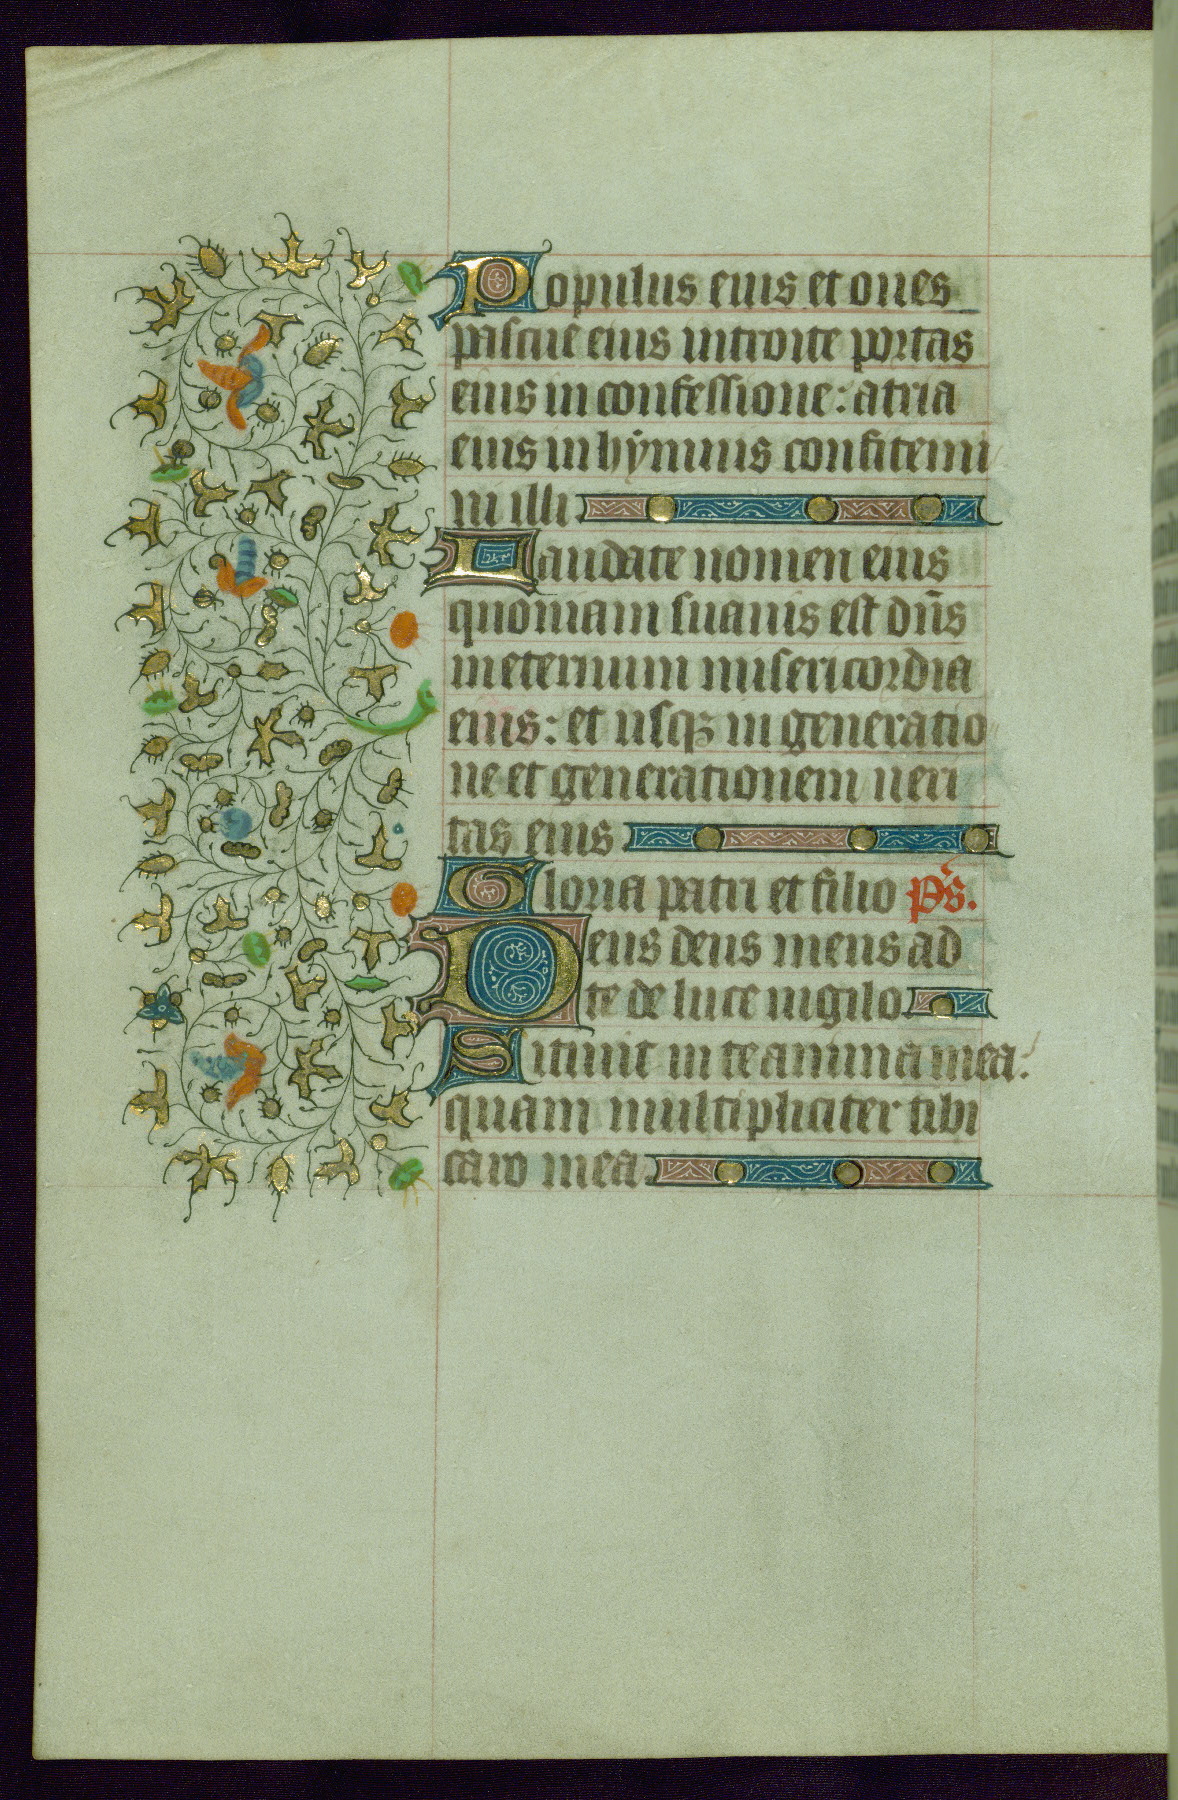 Populus eius et oues
pascue eius introite portas
eius in confessione: atria
eius in hẏmnis confitemi
ni illi
Laudate nomen eius
quoniam suauis est dn̄s
in eternum misericordia
eius: et usqꝫ in generatio
ne et generationem ueri
tas eius
Gloria patri et filio p̄s.
Deus deus meus ad
te de luce uigilo
Sitiuit in te anima mea:
quam multipliciter tibi
caro mea